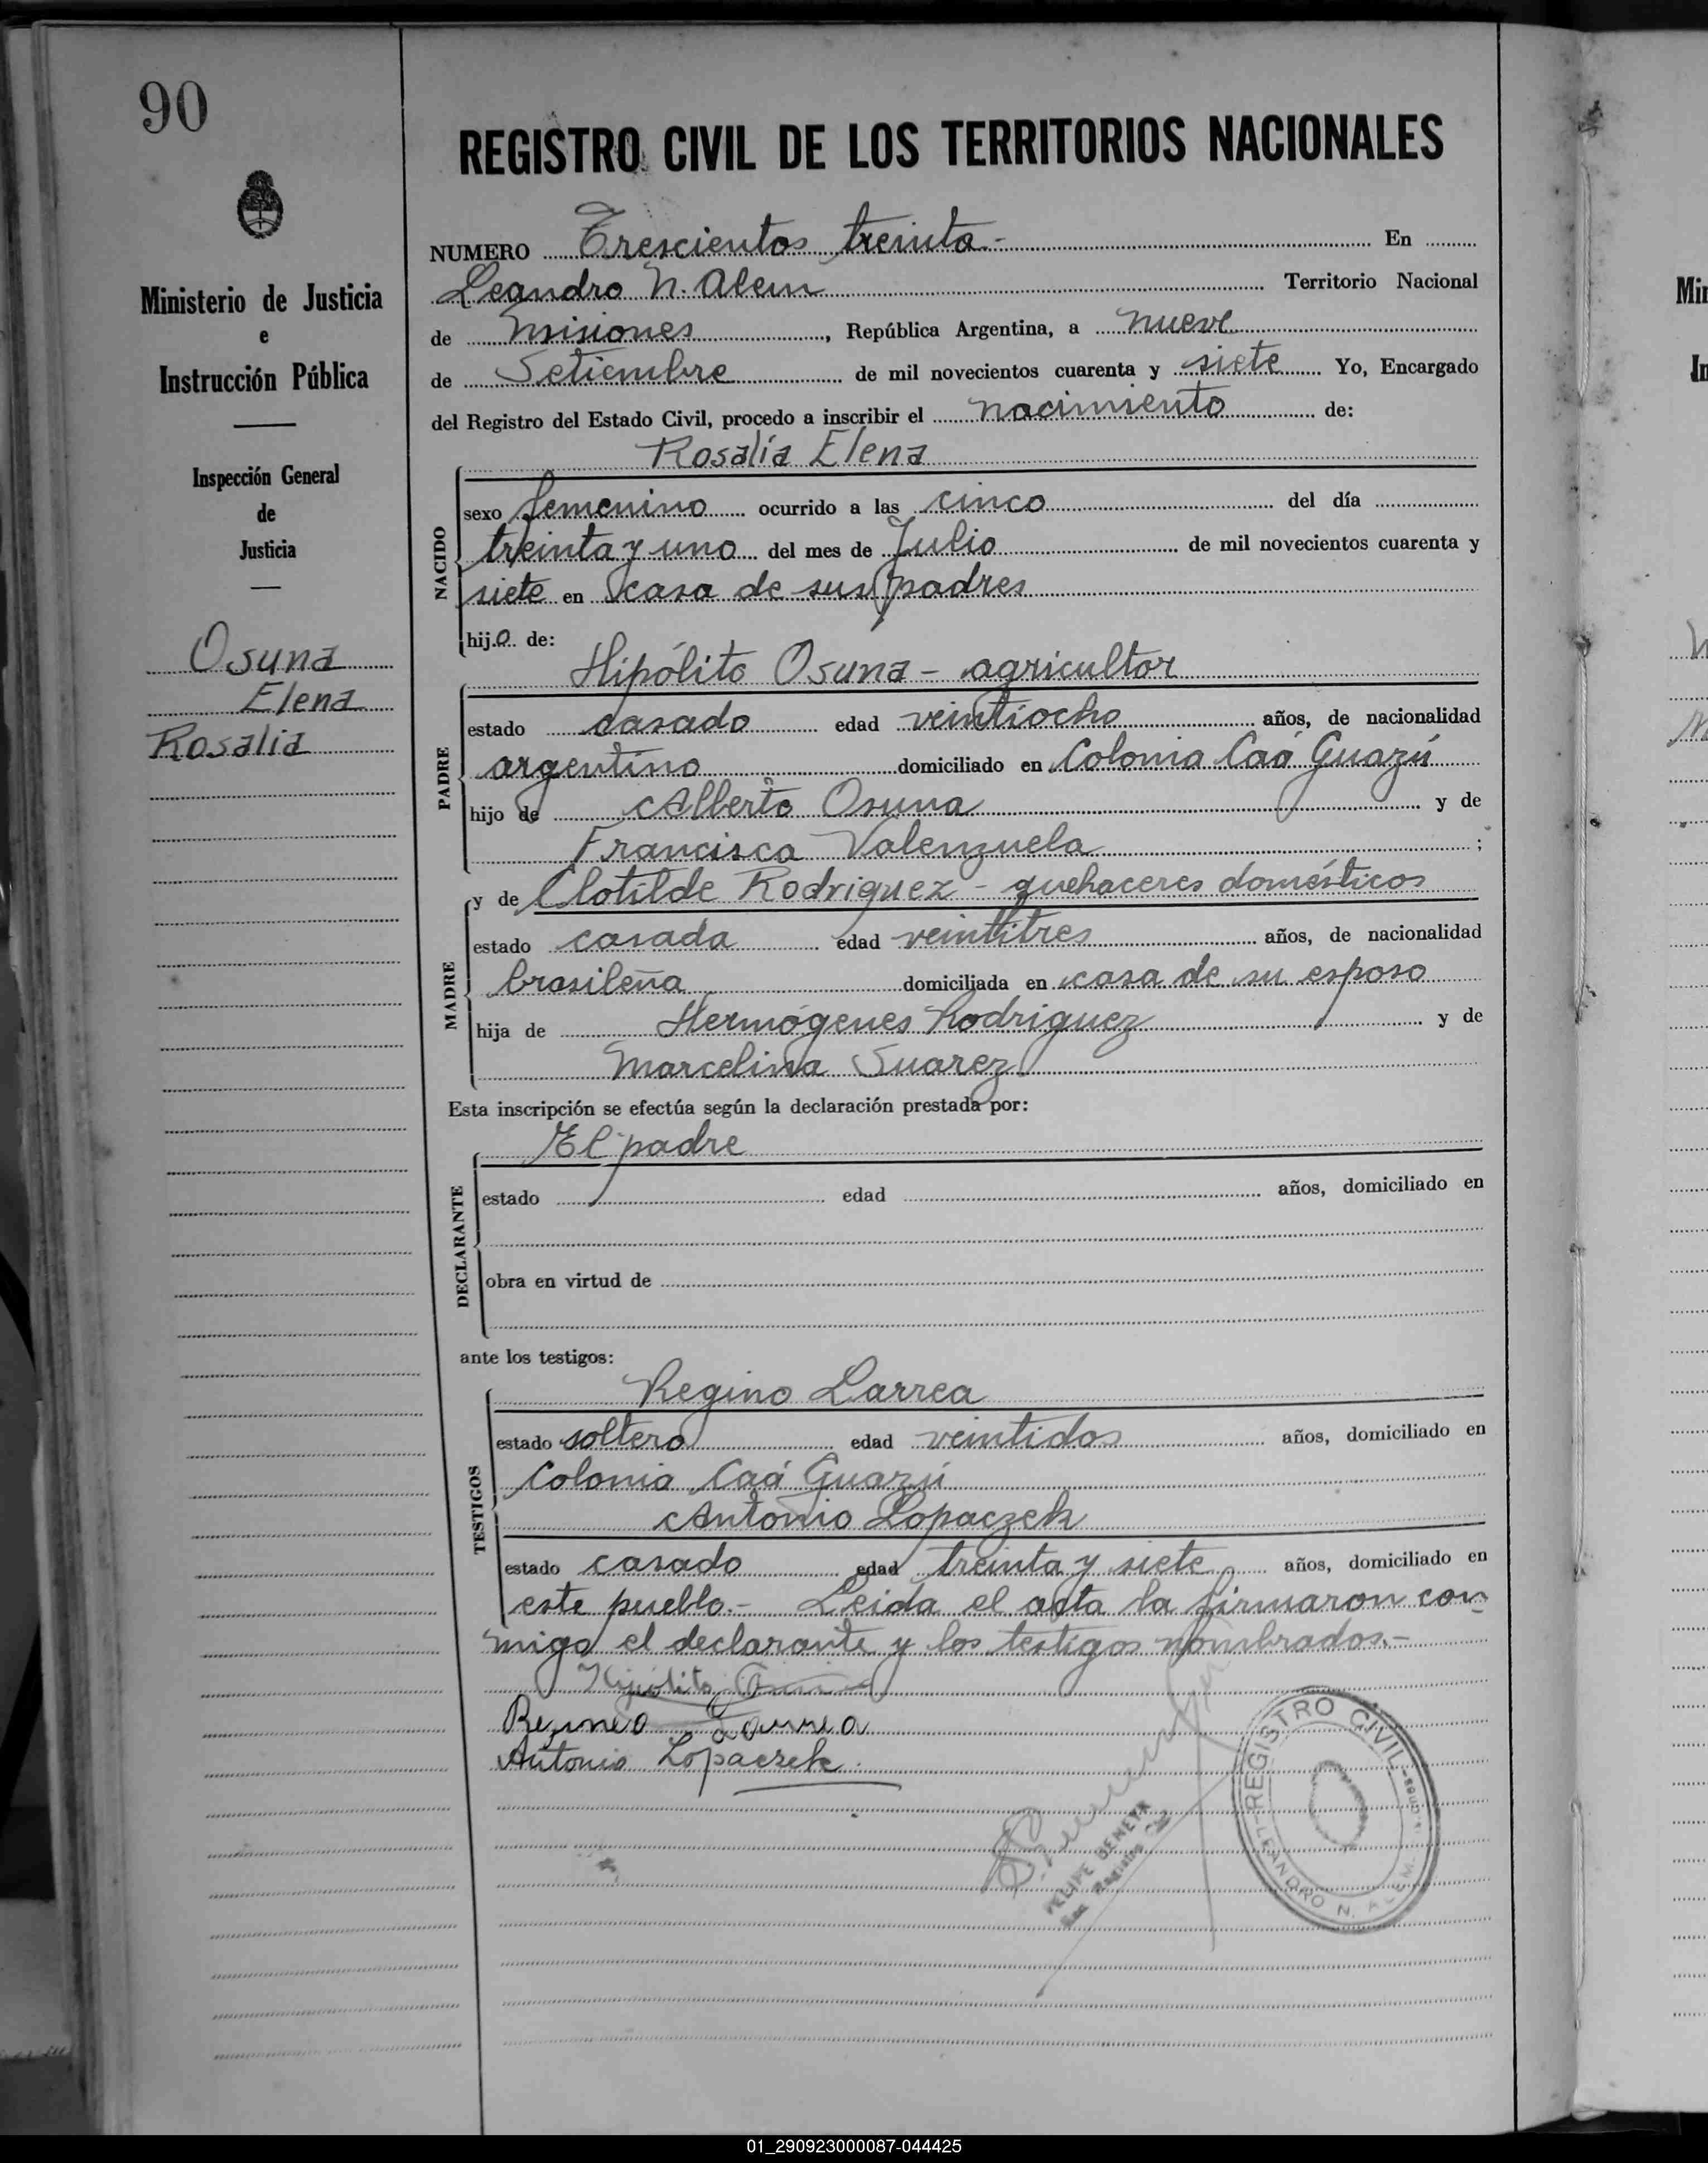 90
Ministerio de Justicia
e
Instrucción Pública
Inspección General
de
Justicia
Osuna
Elena
Rosalia
REGISTRO CIVIL DE LOS TERRITORIOS NACIONALES
NUMERO Trescientos treinta.- En
Leandro N. Alem Territorio Nacional
de Misiones, República Argentina, a nueve
de Setiembre de mil novecientos cuarenta y siete Yo, Encargado
del Registro del Estado Civil, procedo a inscribir el nacimiento de:
NACIDO
Rosalía Elena
sexo femenino ocurrido a las cinco del día
treinta y uno del mes de Julio de mil novecientos cuarenta y
siete en casa de sus padres
hija de:
PADRE
Hipólito Osuna - agricultor
estado casado edad veintiocho años, de nacionalidad
argentino domiciliado en Colonia Caá Guazú
hijo de Alberto Osuna y de
Francisca Valenzuela ;
MADRE
y de Clotilde Rodriguez - quehaceres domésticos
estado casada edad veintitres años, de nacionalidad
brasileña domiciliada en casa de su esposo
hija de Hermógenes Rodriguez y de
Marcelina Suarez
Esta inscripción se efectúa según la declaración prestada por:
DECLARANTE
El padre
estado edad años, domiciliado en
obra en virtud de
ante los testigos:
TESTIGOS
Regino Larrea
estado soltero edad veintidos años, domiciliado en
Colonia Caá Guazú
Antonio Lopaczek
estado casado edad treinta y siete años, domiciliado en
este pueblo.- Leida el acta la firmaron con-
migo el declarante y los testigos nombrados.-
Hipólito Osuna
Regino Larrea
Antonio Lopaczek
FELIPE
REGISTRO CIVIL
LEANDRO N. ALEM
Min
In
01_290923000087-044425